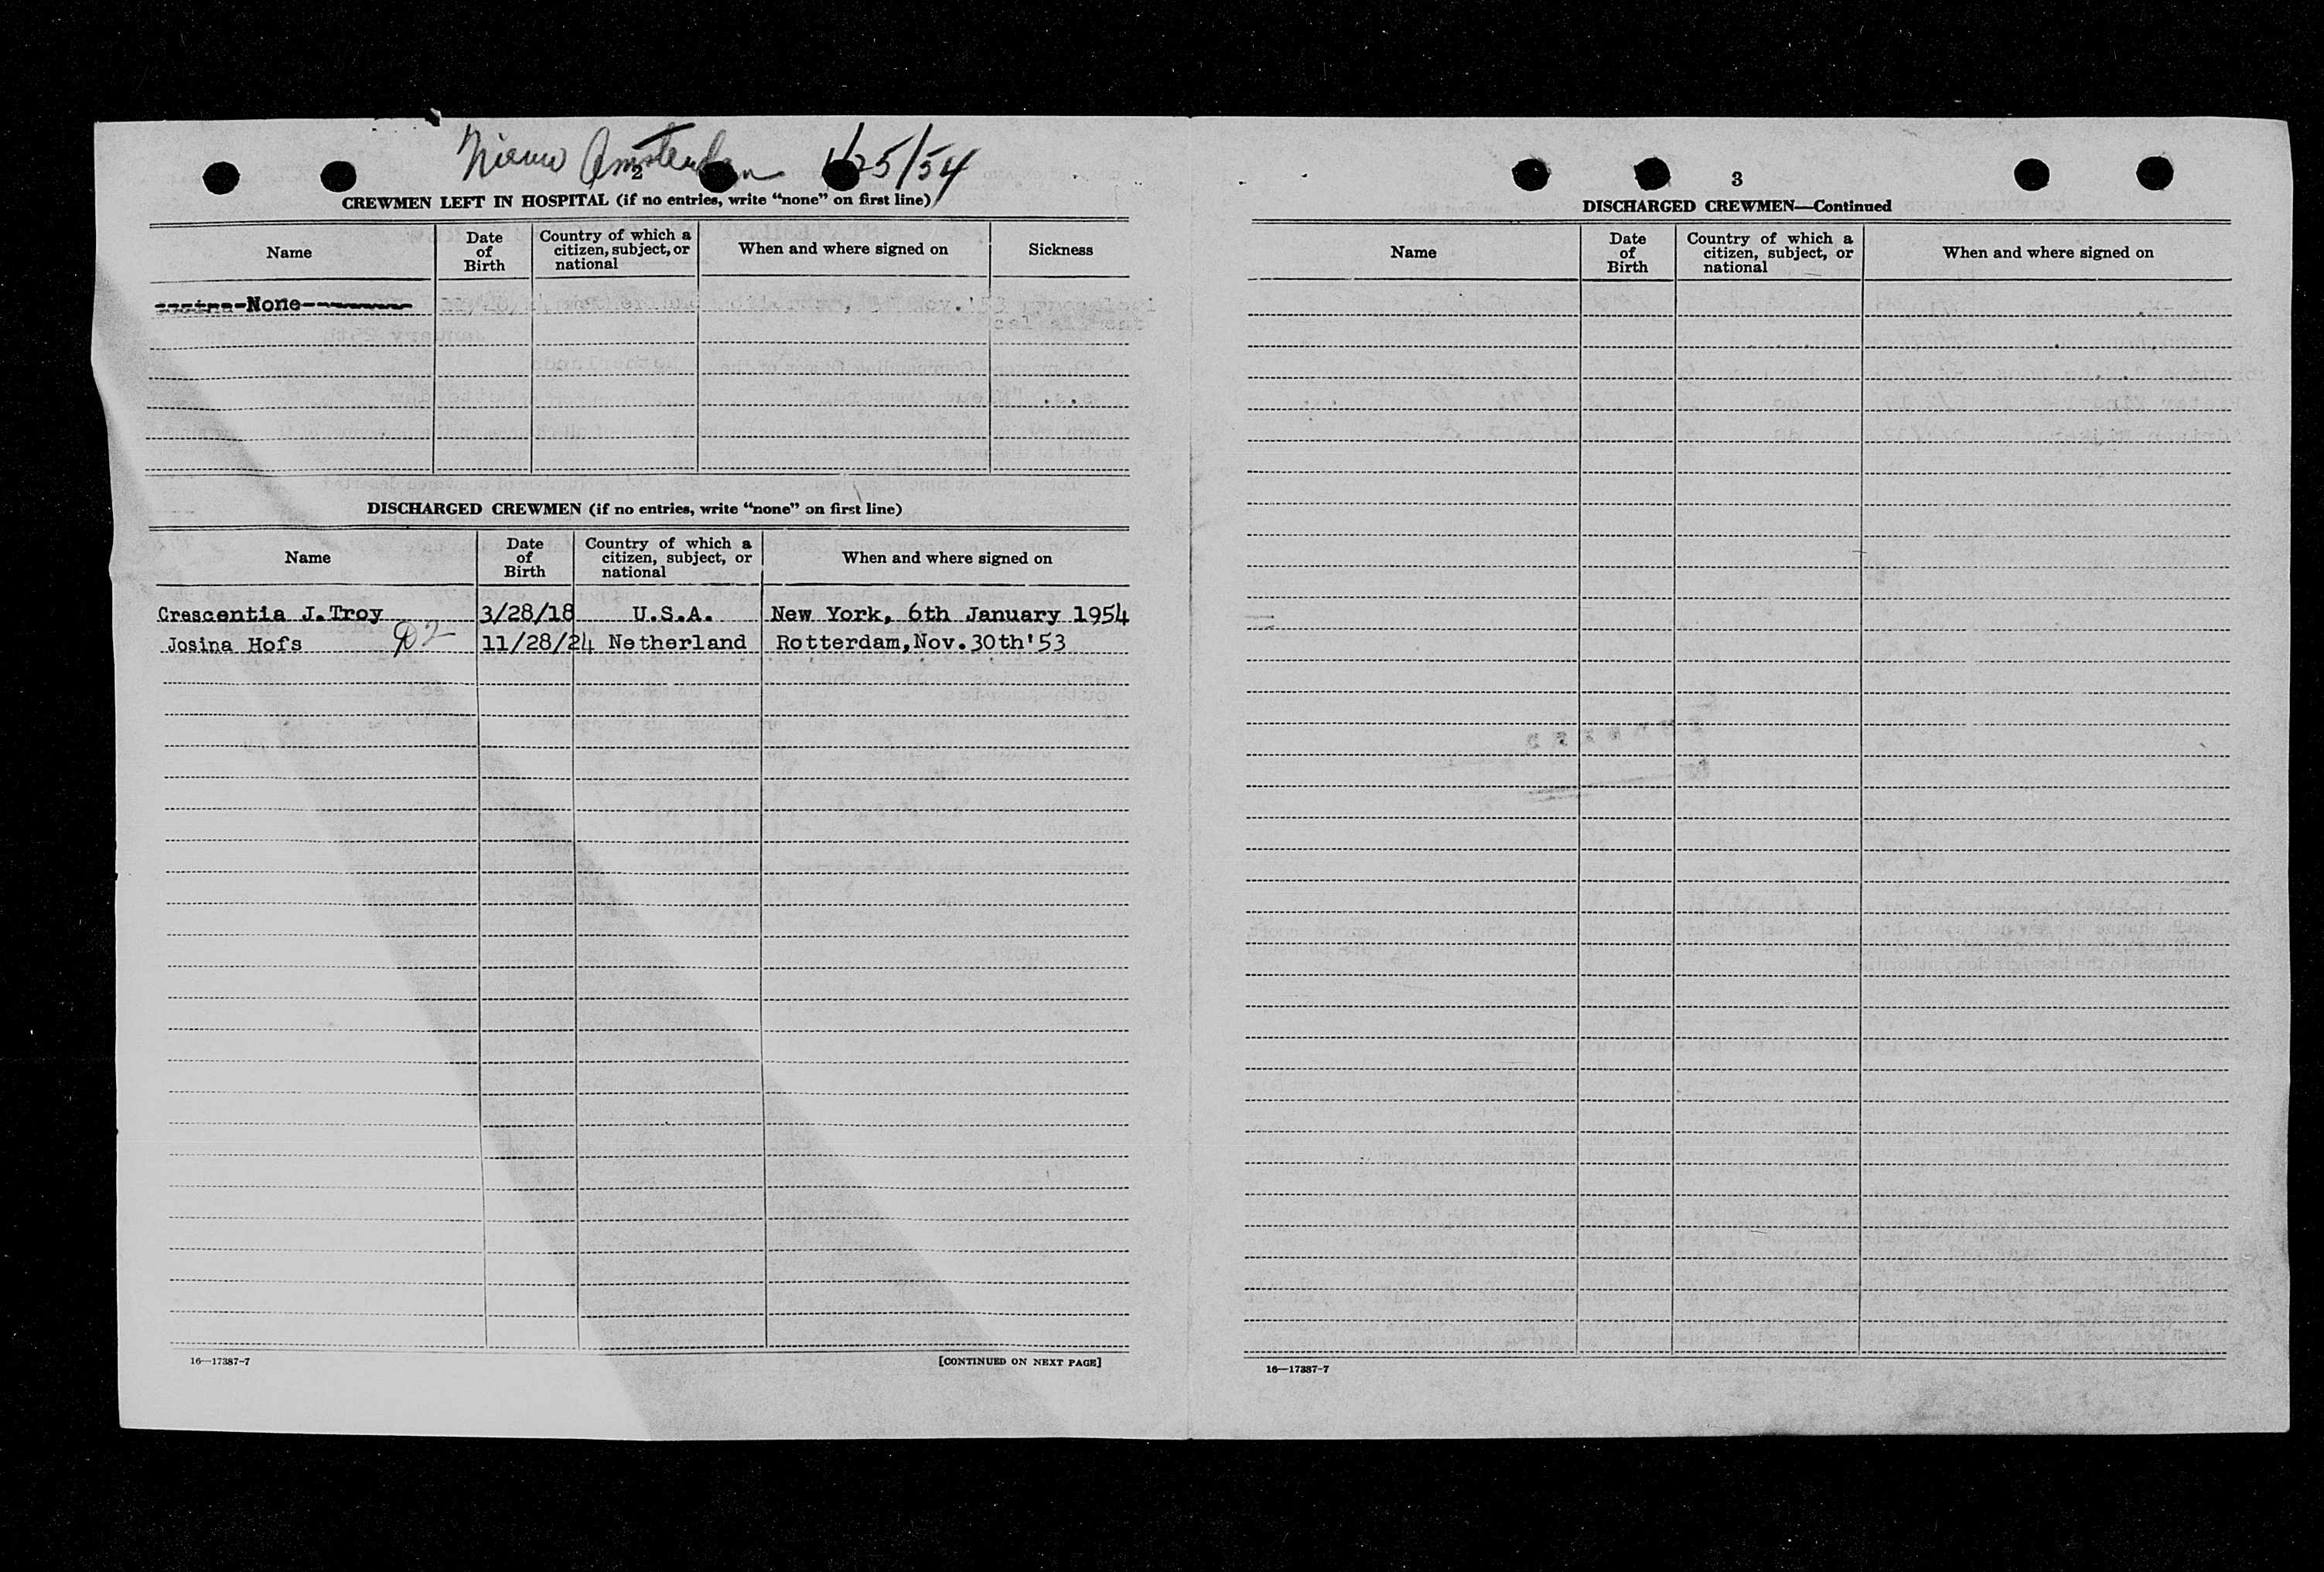 Nieuw Amsterdam 1/25/54
2
CREWMEN LEFT IN HOSPITAL (if no entries, write "none" on first line)
Name
Date of Birth
Country of which a citizen, subject, or national
When and where signed on
Sickness
None
DISCHARGED CREWMEN (if no entries, write "none" on first line)
Name
Date of Birth
Country of which a citizen, subject, or national
When and where signed on
Crescentia J. Troy 3/28/18 U.S.A. New York, 6th January 1954
Josina Hofs D2 11/28/24 Netherland Rotterdam,Nov.30th'53
16—17387-7 [CONTINUED ON NEXT PAGE]
3
DISCHARGED CREWMEN—Continued
Name
Date of Birth
Country of which a citizen, subject, or national
When and where signed on
16—17387-7